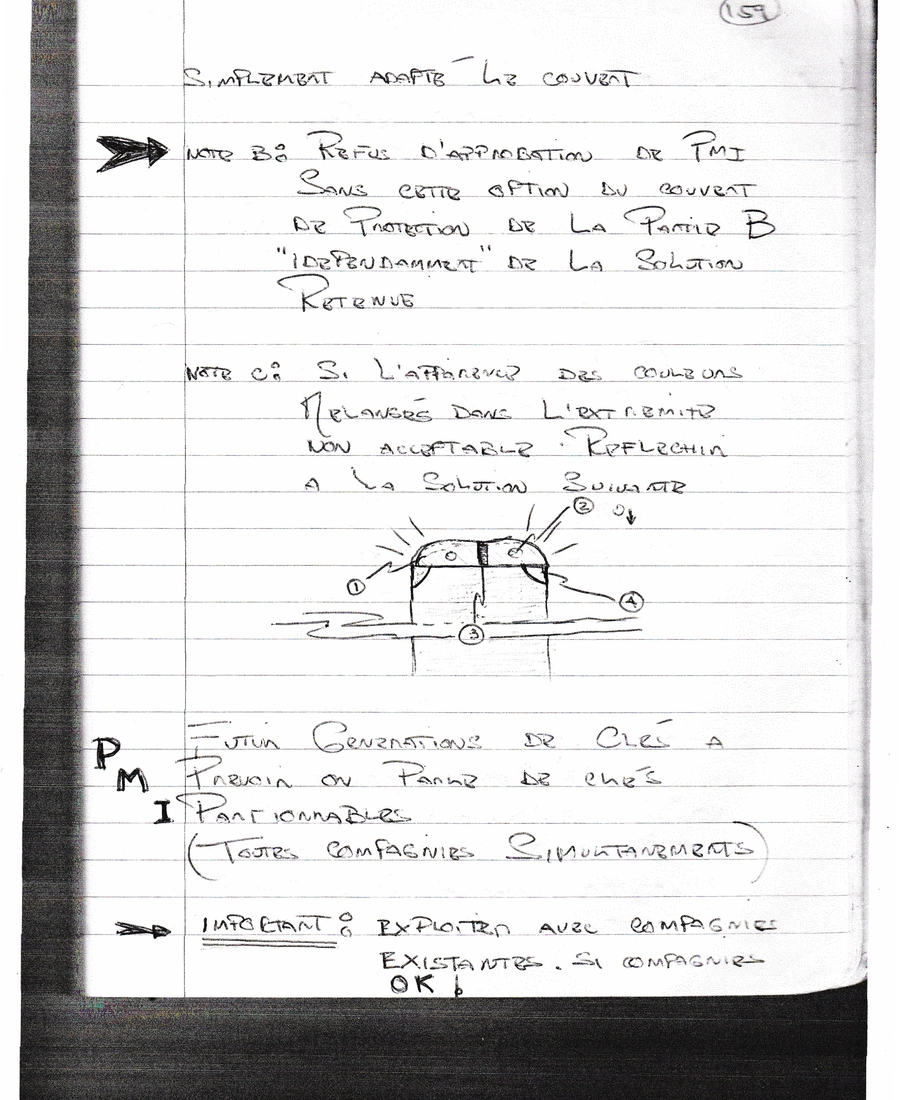 159
SIMPLEMENT ADAPTÉ LE COUVERT
NOTE B: REFUS D'APPROBATION DE PMI
SANS CETTE OPTION DU COUVERT
DE PROTECTION DE LA PARTIE B
"IDEPENDAMMENT" DE LA SOLUTION
RETENUE
NOTE C: SI L'APPARENCE DES COULEURS
MELANGÉS DANS L'EXTREMITE
NON ACCEPTABLE . REFLECHIR
A LA SOLUTION SUIVANTE
②
①
④
③
FUTUR GENERATIONS DE CLÉS A
PMI
PREVOIR ON PARLE DE CLÉS
PARTIONNABLES
(TOUTES COMPAGNIES SIMULTANEMENTS)
IMPORTANT : EXPLOITER AVEC COMPAGNIES
EXISTANTES. SI COMPAGNIES
OK !